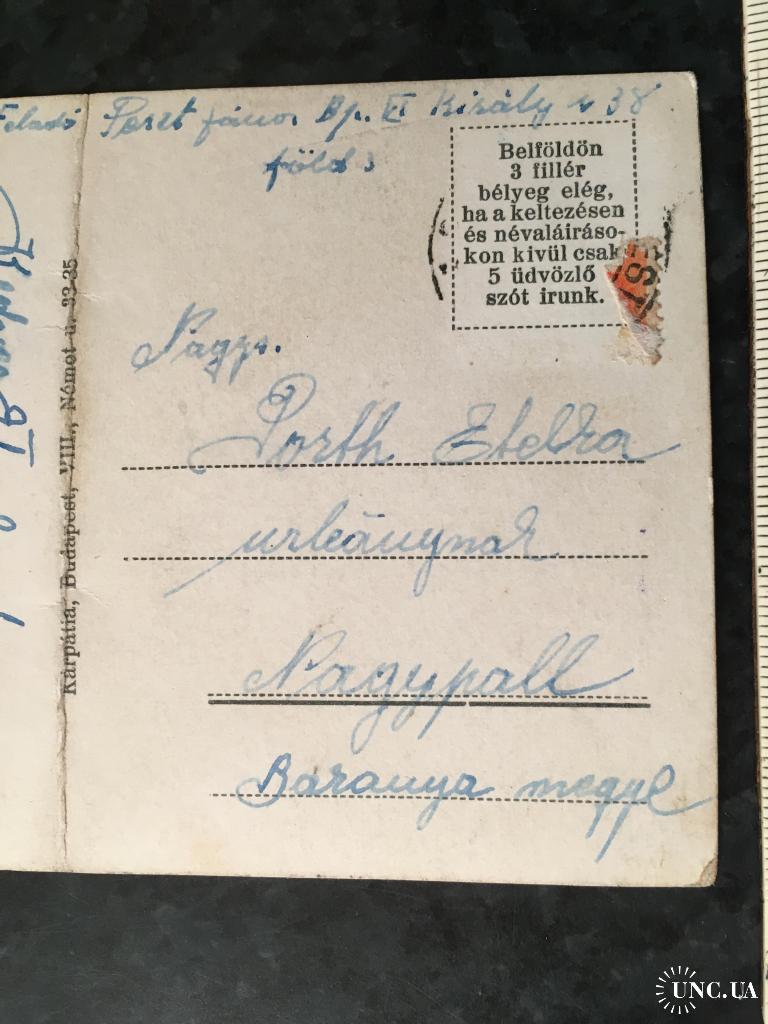 Feladó Peszt János Bp. VI Király u 38
föld 3
Belföldön
3 fillér
bélyeg elég,
ha a keltezésen
és névaláiráso-
kon kivül csak
5 üdvözlő
szót irunk.
Nagys.
Porth Etelka
urleánynak
Nagypall
Baranya megye
Kárpátia, Budapest, VIII., Német u. 33-35
UNC.UA